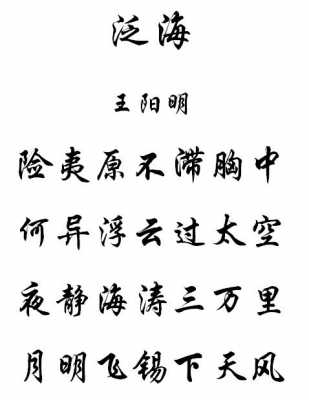 泛海
王阳明
险夷原不滞胸中
何异浮云过太空
夜静海涛三万里
月明飞锡下天风